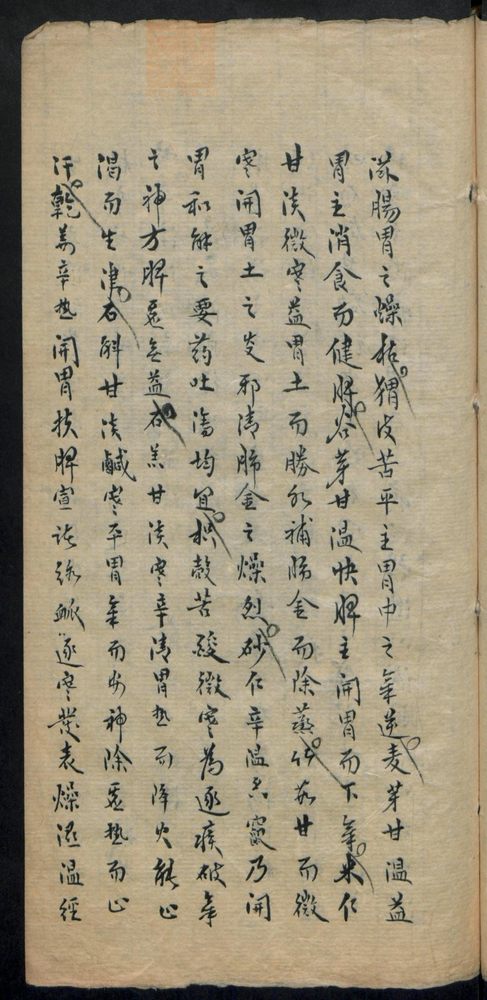 滋腸胃之燥枯猬皮苦平主胃中之氣逆麦芽甘温益
胃主消食而健脾谷芽甘温快脾主開胃而下氣米仁
甘淡微寒益胃土而勝水補肺金而除蒸竹茹甘而微
寒開胃土之炎邪清肺金之燥烈砂仁辛温点竄乃開
胃和解之要药吐瀉均宜枳殼苦酸微寒為逐痰破氣
之神方脾虛無益石羔甘淡寒辛清胃热而降火能止
渴而生津石斛甘淡鹹寒平胃氣而安神除虛热而止
汗乾姜辛热開胃扶脾宣諸絡脈逐寒發表燥濕温經